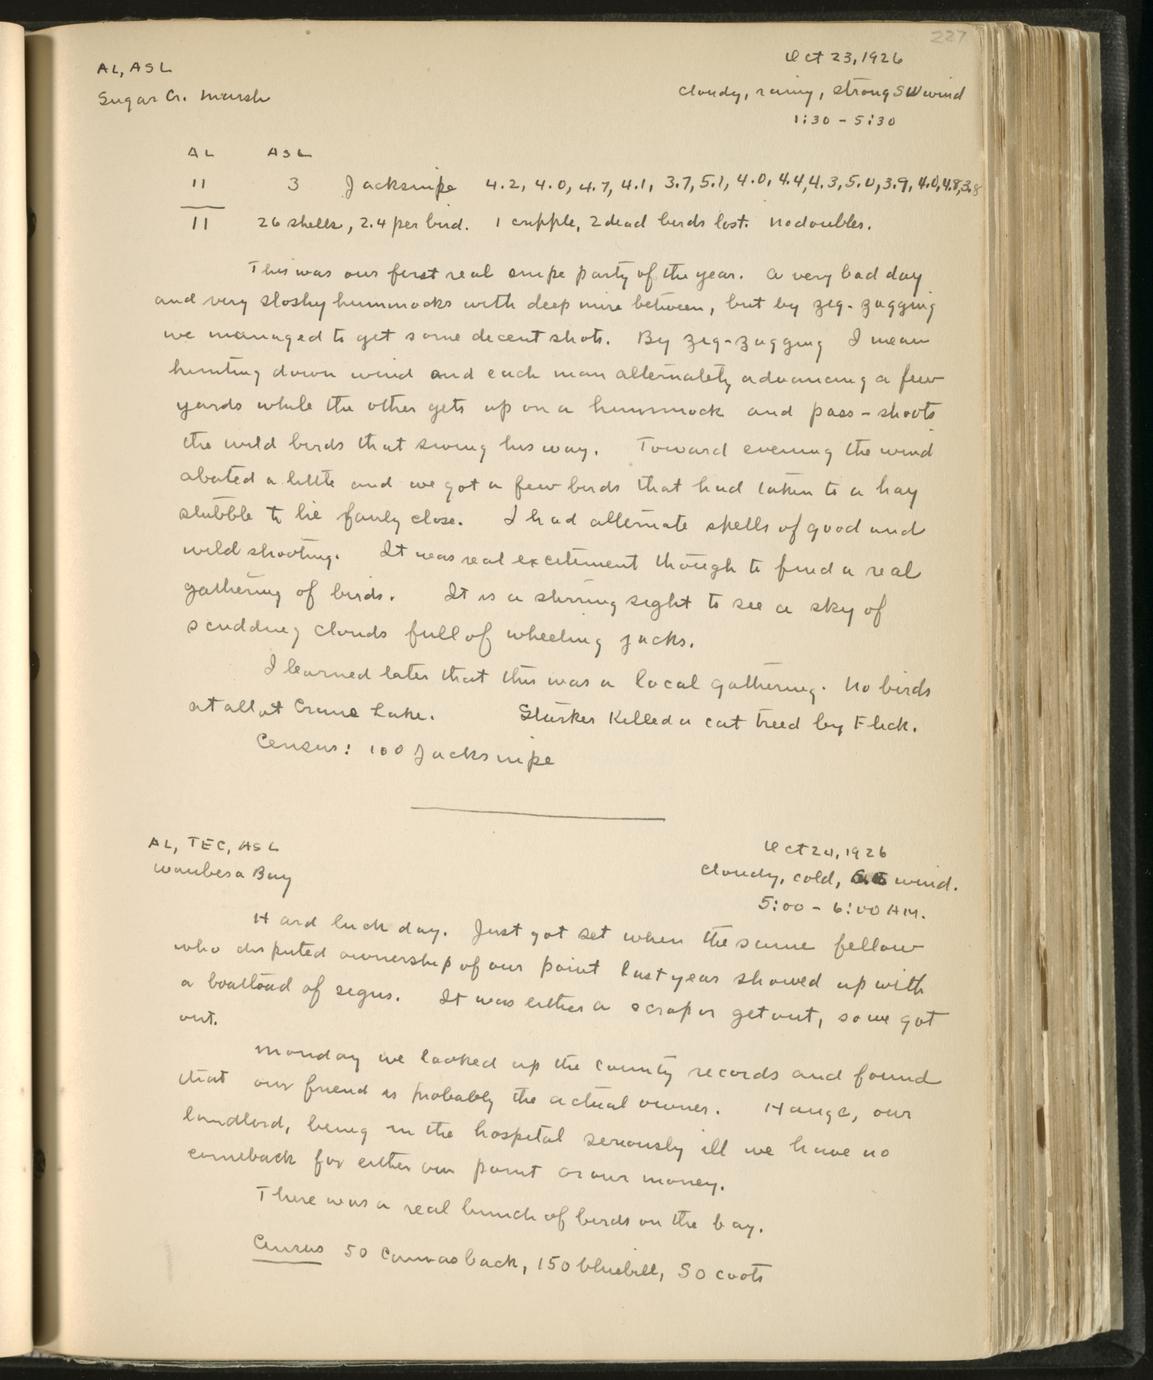 227
AL, ASL
Oct 23, 1926
Sugar Cr. Marsh
cloudy, rainy, strong SW wind
1:30 - 5:30
AL ASL
11 3 Jacksnipe 4.2, 4.0, 4.7, 4.1, 3.7, 5.1, 4.0, 4.4, 4.3, 5.0, 3.9, 4.0, 4.8, 3.8
11 26 shells, 2.4 per bird. 1 cripple, 2 dead birds lost. No doubles.
This was our first real snipe party of the year. A very bad day
and very sloshy hummocks with deep mire between, but by zig-zagging
we managed to get some decent shots. By zig-zagging I mean
hunting down wind and each man alternately advancing a few
yards while the other gets up on a hummock and pass-shoots
the wild birds that swing his way. Toward evening the wind
abated a little and we got a few birds that had taken to a hay
stubble to lie fairly close. I had alternate spells of good and
wild shooting. It was real excitement though to find a real
gathering of birds. It is a stirring sight to see a sky of
scudding clouds full of wheeling jacks.
I learned later that this was a local gathering. No birds
at all at Crane Lake. Starker killed a cat treed by Flick.
Census: 100 Jacksnipe
AL, TEC, ASL
Oct 24, 1926
Waubesa Bay
cloudy, cold, wind.
5:00 - 6:00 AM.
Hard luck day. Just got set when the same fellow
who disputed ownership of our point last year showed up with
a boatload of segus. It was either a scrap or get out, so we got
out.
Monday we looked up the county records and found
that our friend is probably the actual owner. Hauge, our
landlord, being in the hospital seriously ill we have no
comeback for either our point or our money.
There was a real bunch of birds on the bay.
Census 50 Canvasback, 150 bluebill, 50 coots